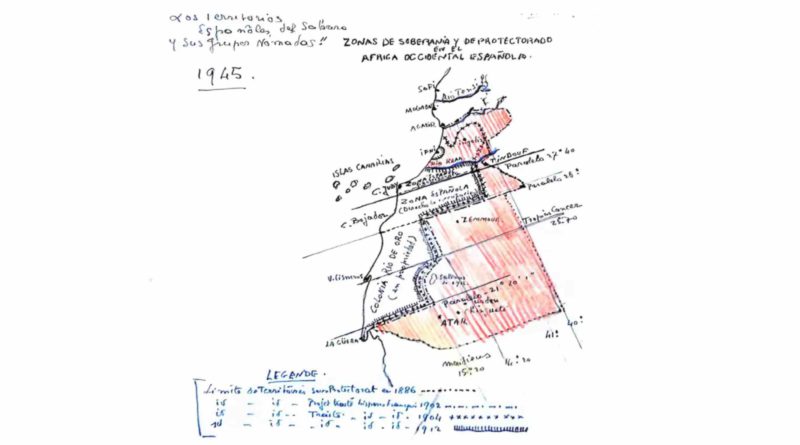 Los Territorios
Españoles del Sahara
y sus grupos Nomadas"
1945.
ZONAS DE SOBERANÍA Y DE PROTECTORADO
EN EL
AFRICA OCCIDENTAL ESPAÑOLA.
SAFI
Rio Tensif
MOGADOR
AGADIR
IFNI
TINDOUF
Paralelo 27° 40
ISLAS CANARIAS
C. Juby
ZONA ESPAÑOLA
Paralelo 26°
C. Bojador
ZEMMOUR
Tropico Cancer
COLONIA RIO DE ORO
(en propiedad)
V. Cisneros
Paralelo 21° 20
ATAR
LA GÜERA
meridiens
15°:20
14°:20
41°
40°
LEGENDE.
Limite de Territoires sous Protectorat en 1886
id - id - Projet traité hispano français 1902
id - id - Traité - id - id - 1904
id - id - - id - id - 1912